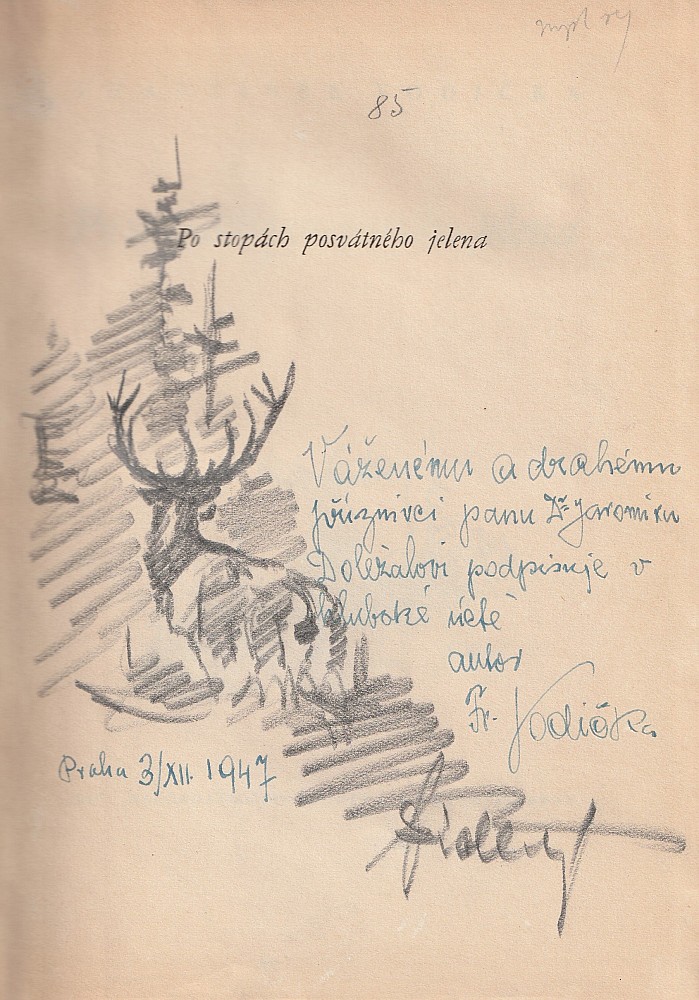 85
Po stopách posvátného jelena
Váženému a drahému
příznivci panu Dr Jaromíru
Doležalovi podpisuje v
hluboké úctě
autor
Fr. Vodička
Praha 3/XII. 1947